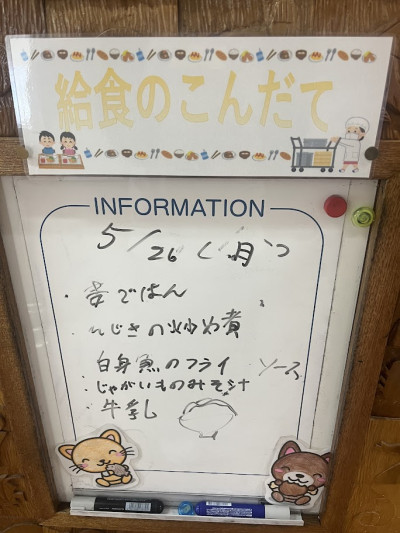 給食のこんだて
INFORMATION
5/26（月）
・麦ごはん
・ひじきの炒め煮
白身魚のフライ ソース
・じゃがいものみそ汁
・牛乳